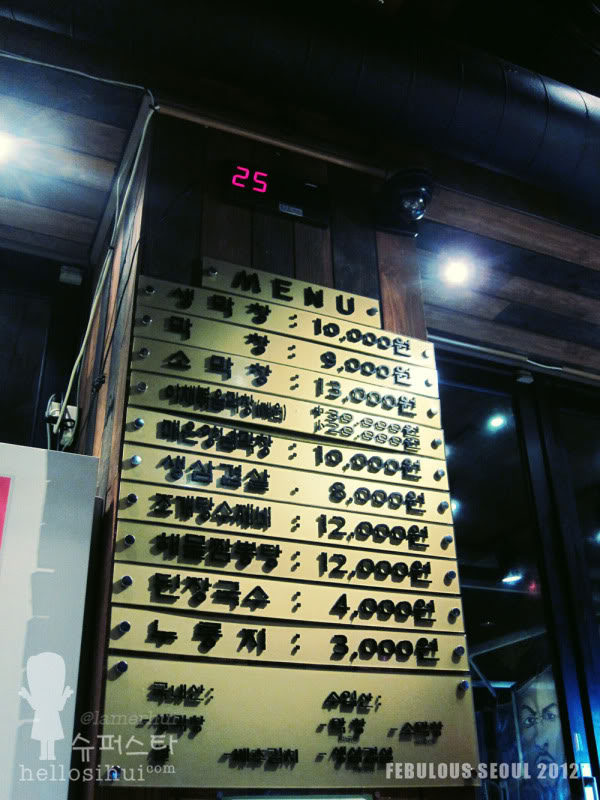 25
MENU
생막창 : 10,000원
막창 : 9,000원
소막창 : 13,000원
야채볶음막창(매운)
매운양념막창 : 10,000원
생삼겹살 : 8,000원
조개탕수제비 : 12,000원
해물짬뽕탕 : 12,000원
된장국수 : 4,000원
누룽지 : 3,000원
국내산: 수입산:
-막창 -소막창
-배추김치 -생삼겹살
@lamerhui
슈퍼스타
hellosihui.com
FEBULOUS SEOUL 2012